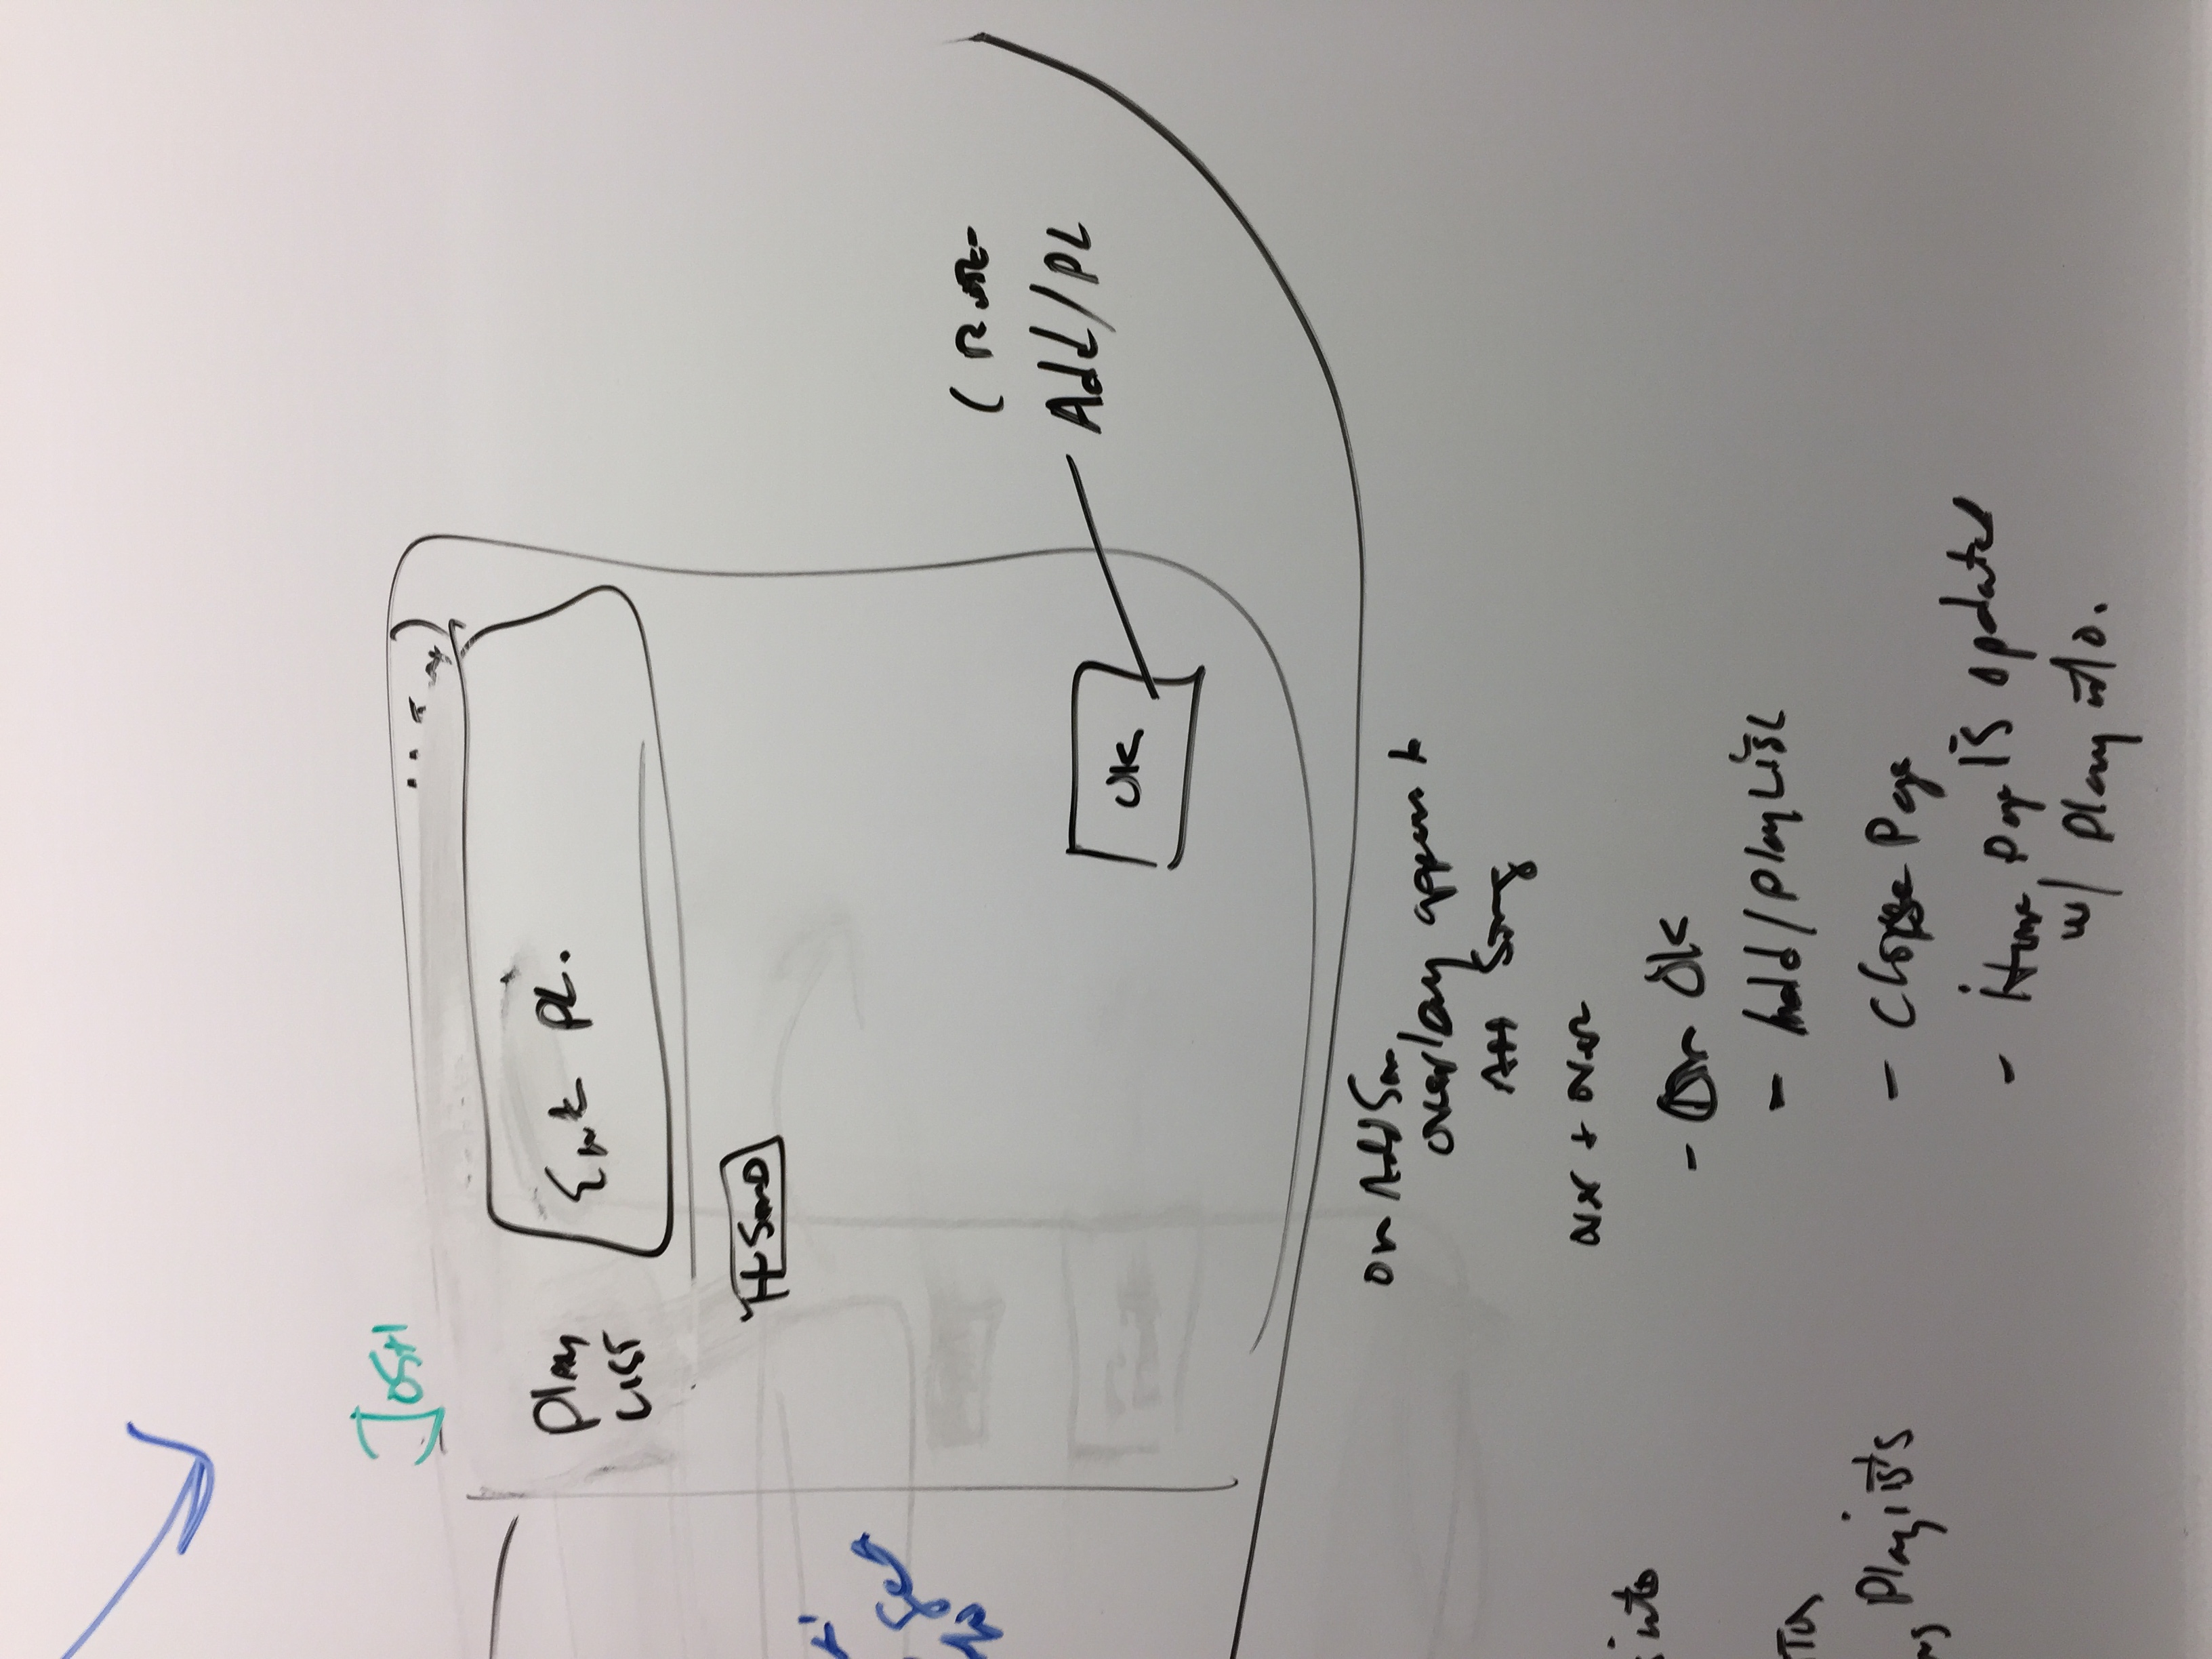 JOSH
Play
LIST
Ent PL.
OK
Add/PL
get
on Add Son
overlay appears to
Add Song
over + over
- On Ok
- Add/PlayList
- Close Page
- Home Page is updated
w/ Play info.
into
Playlists